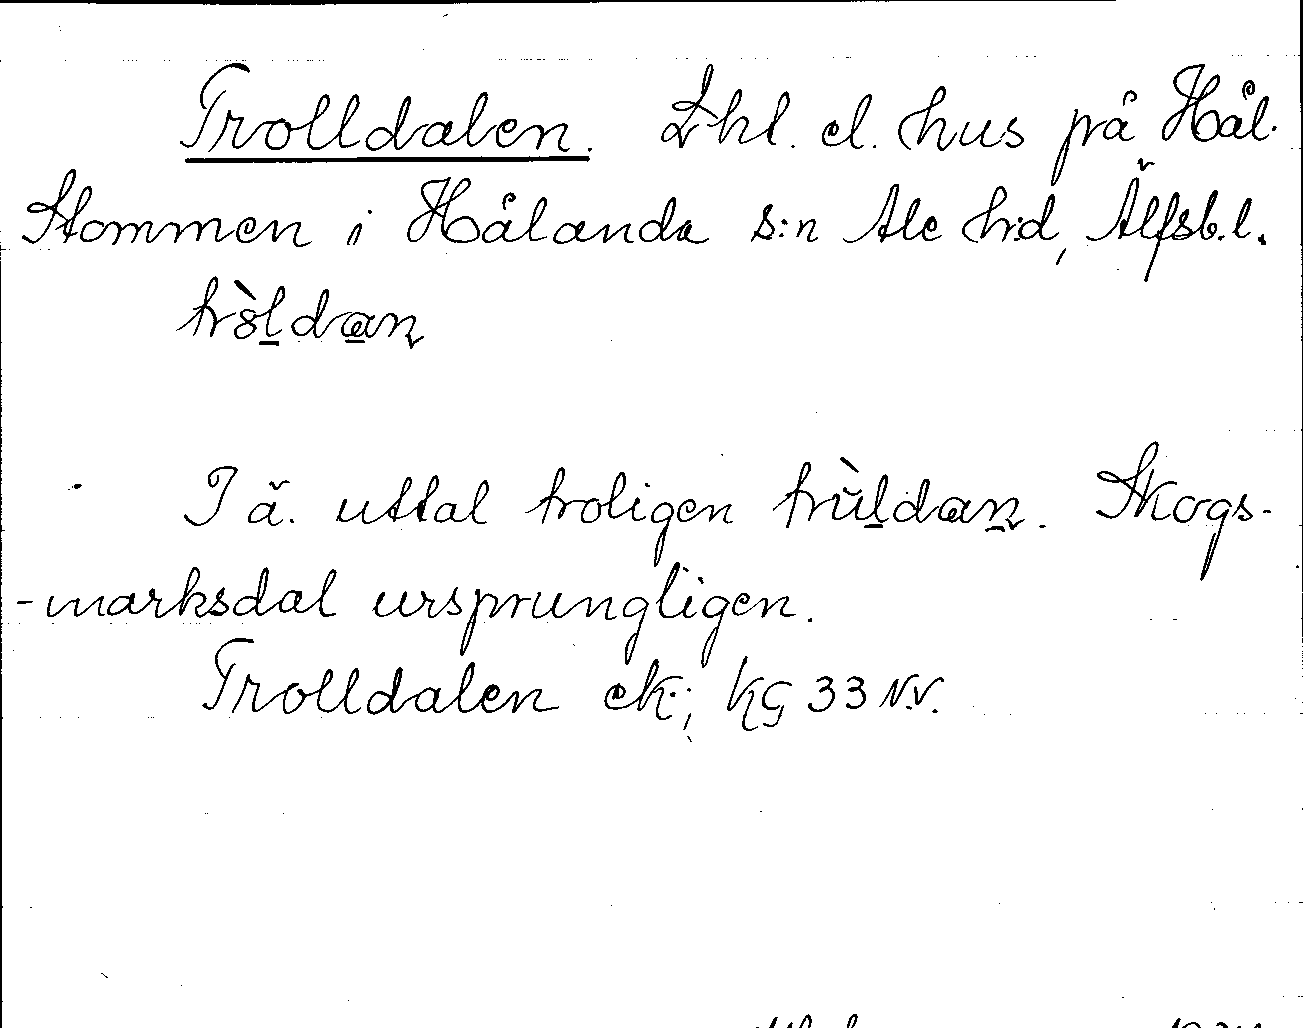 Trolldalen. Lhl. el. hus på Hål.
Stommen i Hålanda s:n Ale h:d, Älfsb.l.
tròldan
I ä. uttal troligen trùldan. Skogs-
-marksdal ursprungligen.
Trolldalen ek.; KG 33 N.V.